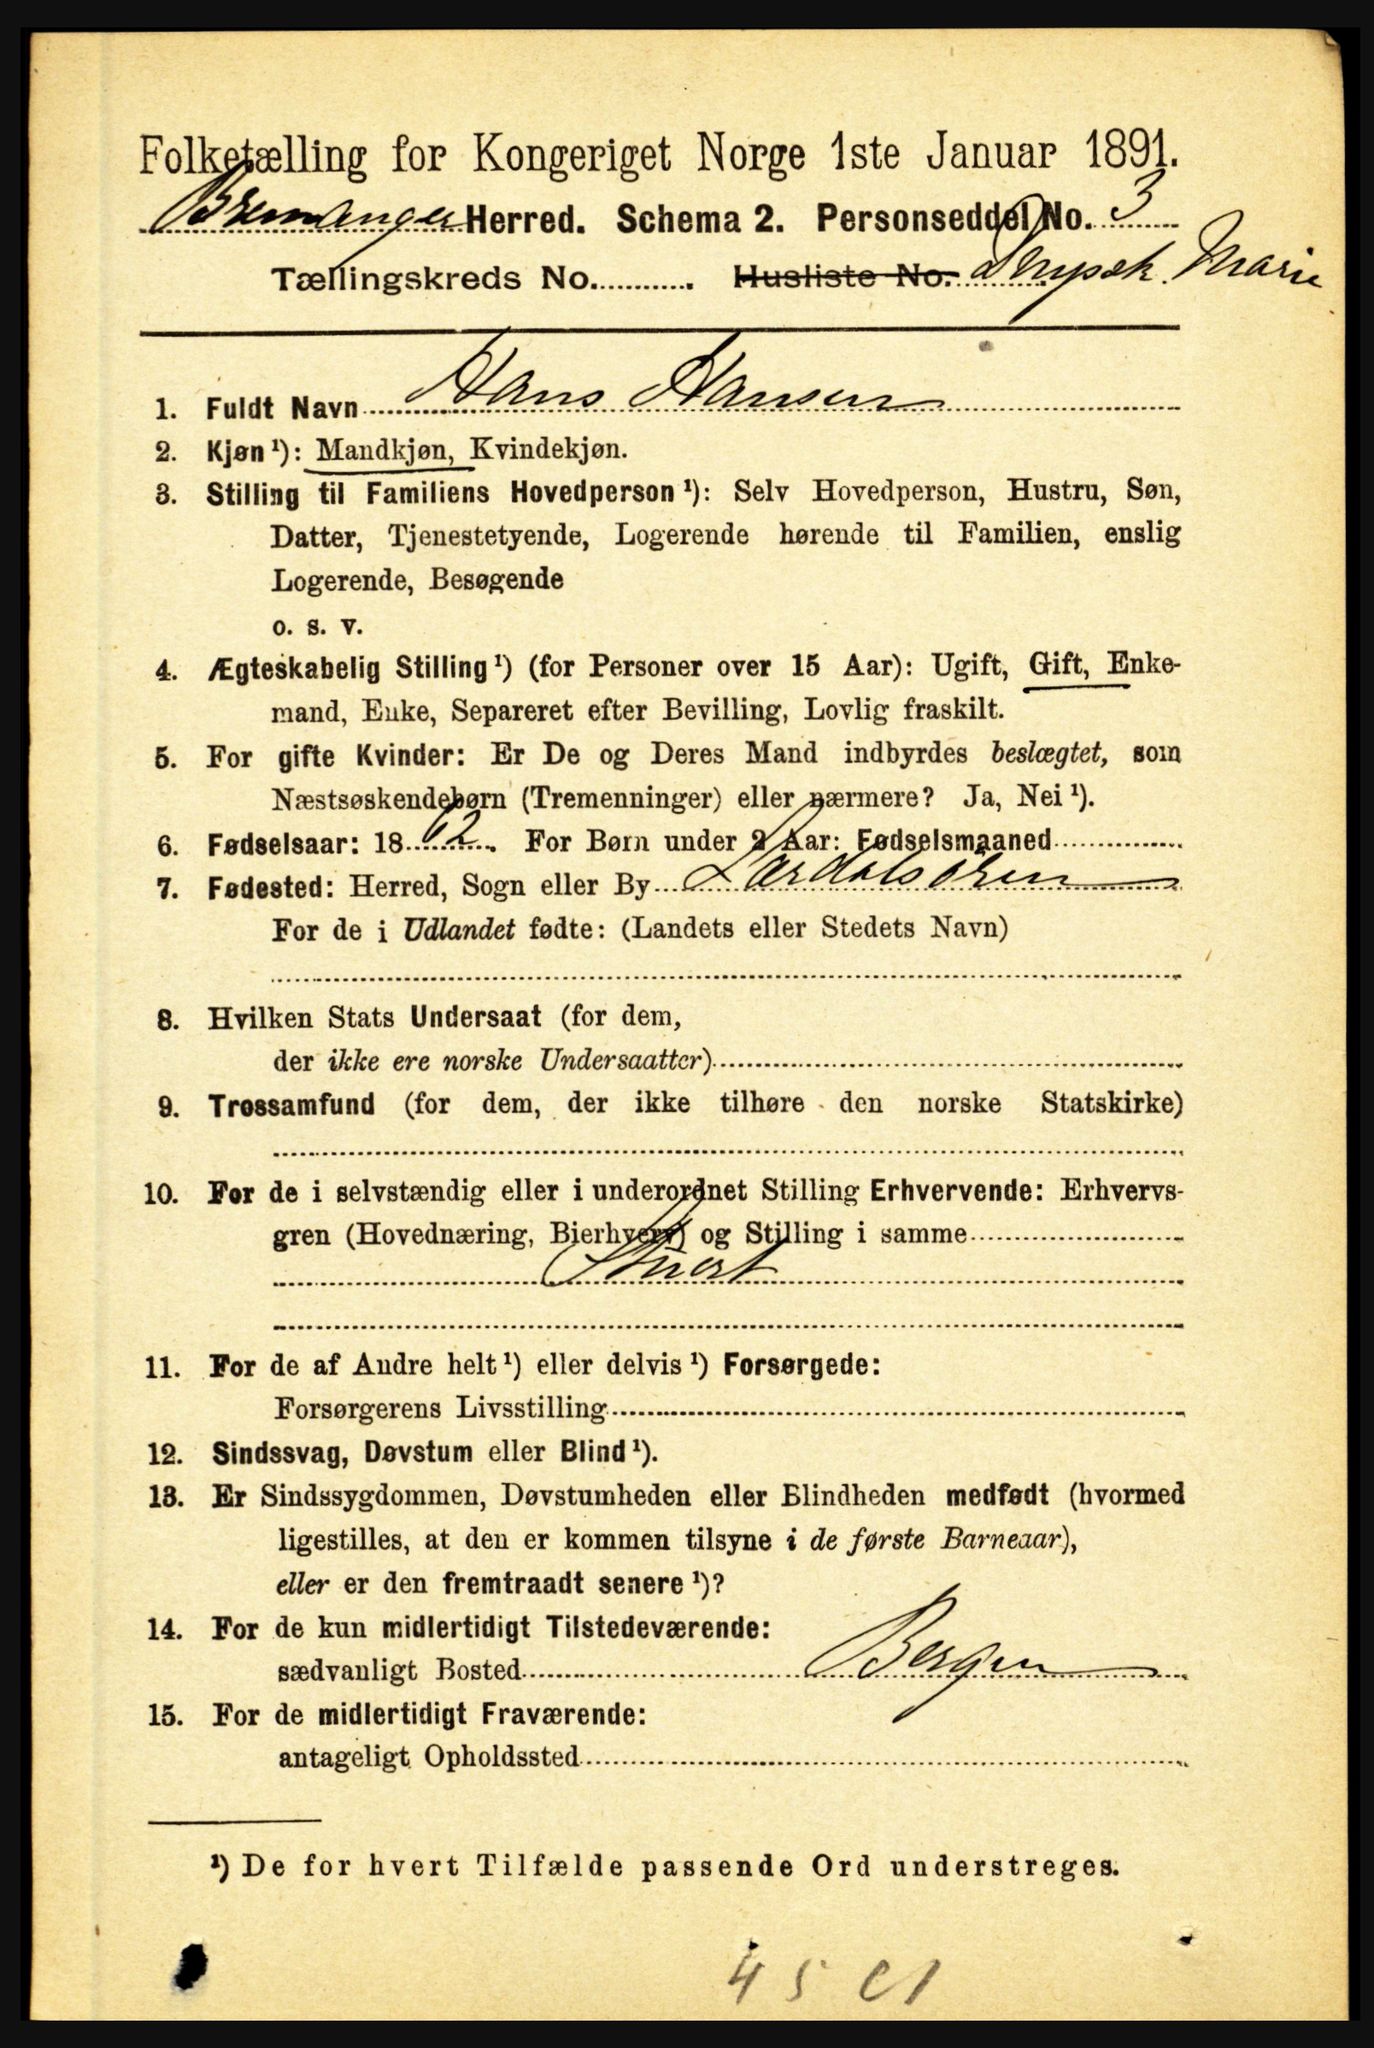 Folketælling for Kongeriget Norge 1ste Januar 1891.
Bremanger Herred. Schema 2. Personseddel No. 3
Tællingskreds No. .......... Husliste No. Marie
1. Fuldt Navn Hans Hansen
2. Kjøn ¹): Mandkjøn, Kvindekjøn.
3. Stilling til Familiens Hovedperson ¹): Selv Hovedperson, Hustru, Søn,
Datter, Tjenestetyende, Logerende hørende til Familien, enslig
Logerende, Besøgende
o. s. v.
4. Ægteskabelig Stilling ¹) (for Personer over 15 Aar): Ugift, Gift, Enke-
mand, Enke, Separeret efter Bevilling, Lovlig fraskilt.
5. For gifte Kvinder: Er De og Deres Mand indbyrdes beslægtet, som
Næstsøskendebørn (Tremenninger) eller nærmere? Ja, Nei ¹).
6. Fødselsaar: 1862. For Børn under 2 Aar: Fødselsmaaned
7. Fødested: Herred, Sogn eller By Lærdalsøren
For de i Udlandet fødte: (Landets eller Stedets Navn)
8. Hvilken Stats Undersaat (for dem,
der ikke ere norske Undersaatter)
9. Trossamfund (for dem, der ikke tilhøre den norske Statskirke)
10. For de i selvstændig eller i underordnet Stilling Erhvervende: Erhvervs-
gren (Hovednæring, Bierhverv) og Stilling i samme
Stuert
11. For de af Andre helt ¹) eller delvis ¹) Forsørgede:
Forsørgerens Livsstilling
12. Sindssvag, Døvstum eller Blind ¹).
13. Er Sindssygdommen, Døvstumheden eller Blindheden medfødt (hvormed
ligestilles, at den er kommen tilsyne i de første Barneaar),
eller er den fremtraadt senere ¹)?
14. For de kun midlertidigt Tilstedeværende:
sædvanligt Bosted Bergen
15. For de midlertidigt Fraværende:
antageligt Opholdssted
¹) De for hvert Tilfælde passende Ord understreges.